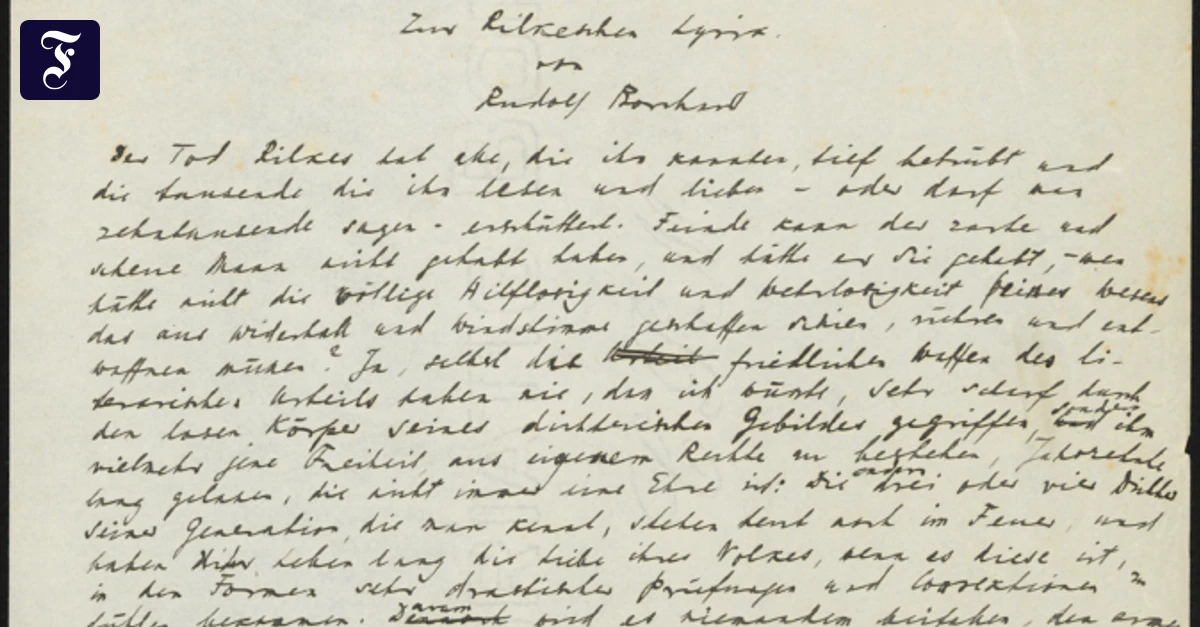 F
Zur Rilkeschen Lyrik.
von
Rudolf Borchardt
Der Tod Rilkes hat alle, die ihn kannten, tief betrübt und
die tausende die ihn lesen und lieben – oder darf man
zehntausende sagen – erschüttert. Feinde kann der zarte und
scheue Mann nicht gehabt haben, und hätte er sie gehabt, – wen
hätte nicht die völlige Hilflosigkeit und Wehrlosigkeit seines Wesens
das aus Widerhall und Windstimme geschaffen schien, rühren und ent-
waffnen müssen? Ja, selbst die friedlichen Waffen des li-
terarischen Urteils haben nie, dass ich wüsste, sehr scharf durch
den losen Körper seines dichterischen Gebildes gegriffen, sondern ihm
vielmehr jene Freiheit, aus eigenem Rechte zu bestehen, Jahrzehnte
lang gelassen, die nicht immer eine Ehre ist: Die andern drei oder vier Dichter
seiner Generation, die man kennt, stehen heut noch im Feuer, und
haben ihr Leben lang die Liebe ihres Volkes, wenn es diese ist,
in den Formen sehr drastischer Prüfungen und Correktionen zu
fühlen bekommen. Darum wird es niemandem beifallen, den